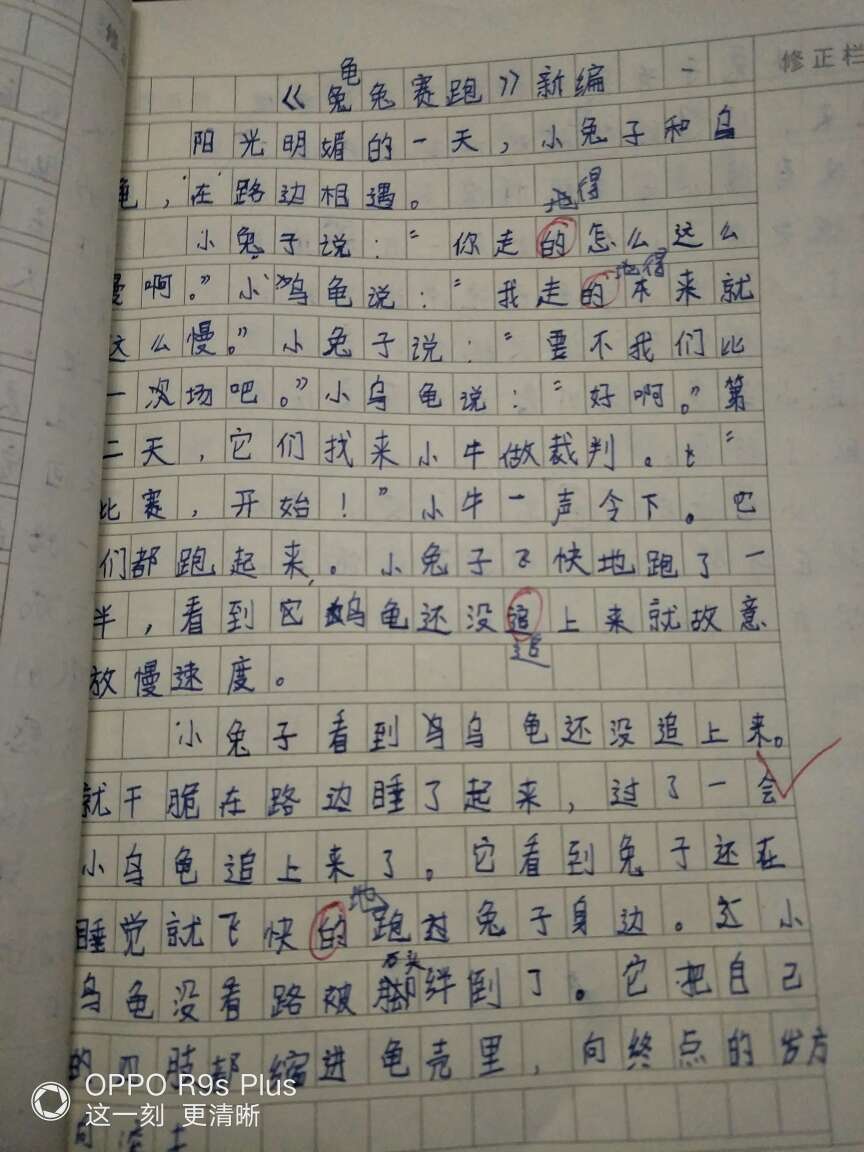 修正栏
龟
《兔兔赛跑》新编
阳光明媚的一天，小兔子和乌
龟，在路边相遇。
地得
小兔子说：“你走的怎么这么
慢啊。”小乌龟说：“我走的本来就
地得
这么慢。”小兔子说：“要不我们比
一次场吧。”小乌龟说：“好啊。”第
二天，它们找来小牛做裁判。“
比赛，开始！”小牛一声令下。它
们都跑起来。小兔子飞快地跑了一
半，看到它乌龟还没追上来就故意
追
放慢速度。
小兔子看到乌龟还没追上来。
就干脆在路边睡了起来，过了一会
小乌龟追上来了。它看到兔子还在
地
睡觉就飞快的跑过兔子身边。小
石头
乌龟没看路被脚绊倒了。它把自己
的四肢都缩进龟壳里，向终点的方
向
OPPO R9s Plus
这一刻 更清晰